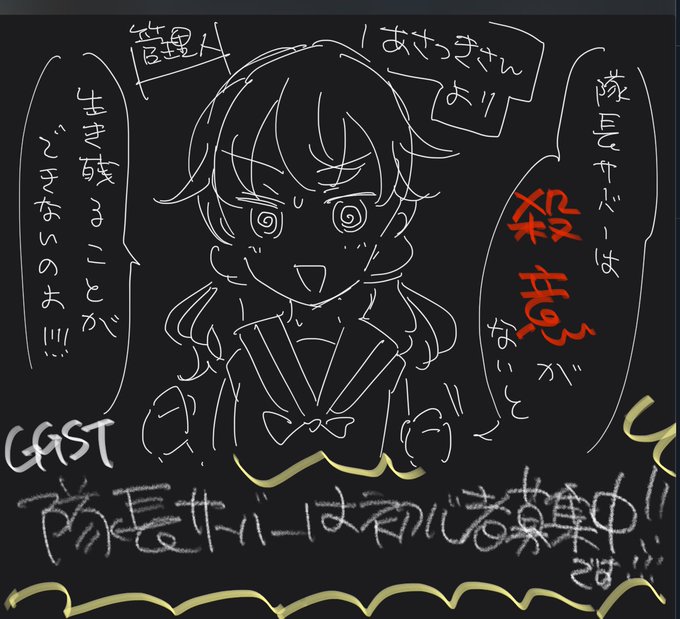 管理人
あさつきさん
より
隊長サーバーは
殺意が
ないと
生き残ることが
できないのよ!!!!
GGST
隊長サーバーは初心者募集中!!
です!!!